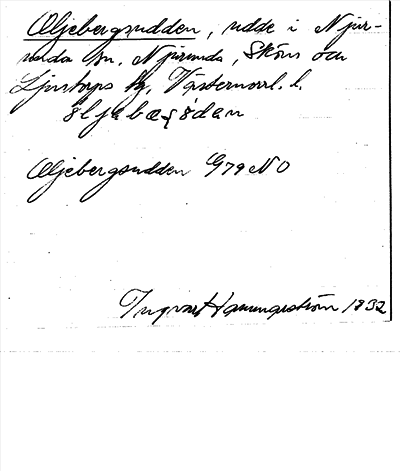 Oljebergsudden, udde i Njur-
unda sn, Njurunda, Sköns och
Ljustorps tg, Västernorrl. l.
Oljebergsudden G79 NO
Ingvar Hammarström 1932